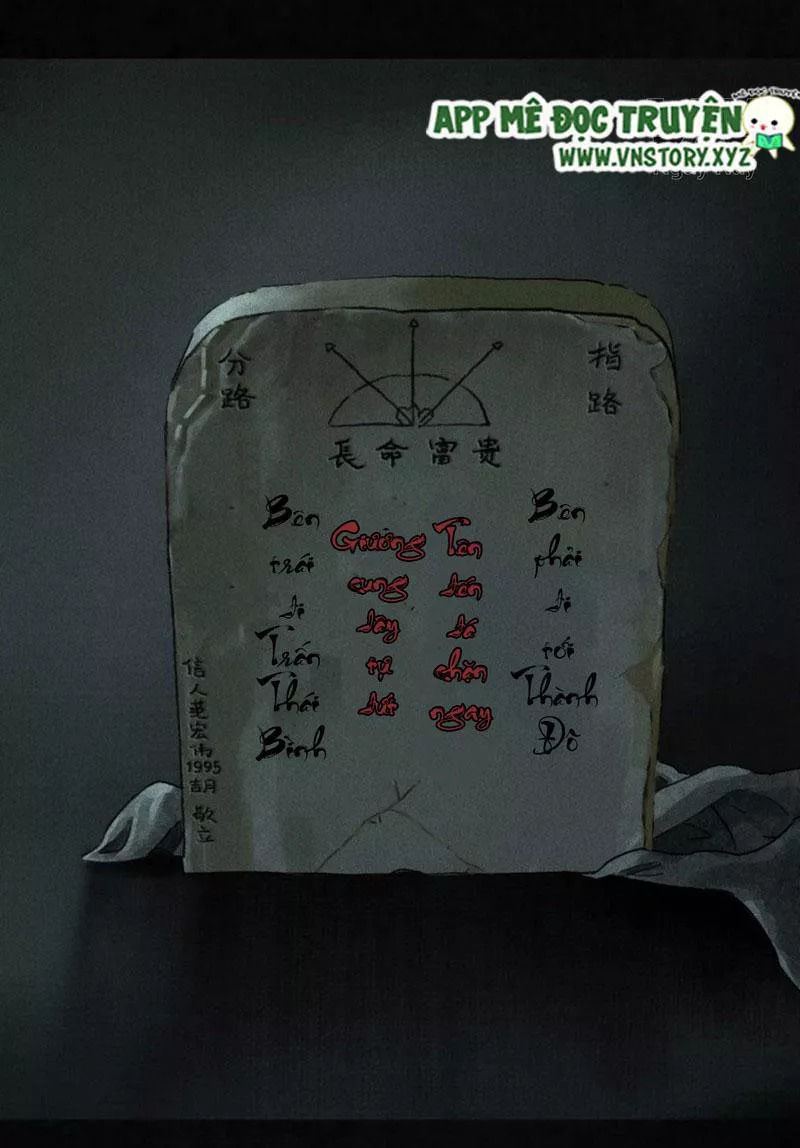 MÊ ĐỌC TRUYỆN
APP MÊ ĐỌC TRUYỆN
WWW.VNSTORY.XYZ
分路
指路
長命富貴
Bên trái đi Trấn Thái Bình
Giương cung dây tự đứt
Tên đến đá chặn ngay
Bên phải đi tới Thành Đô
信人
宏伟
1995
敬立